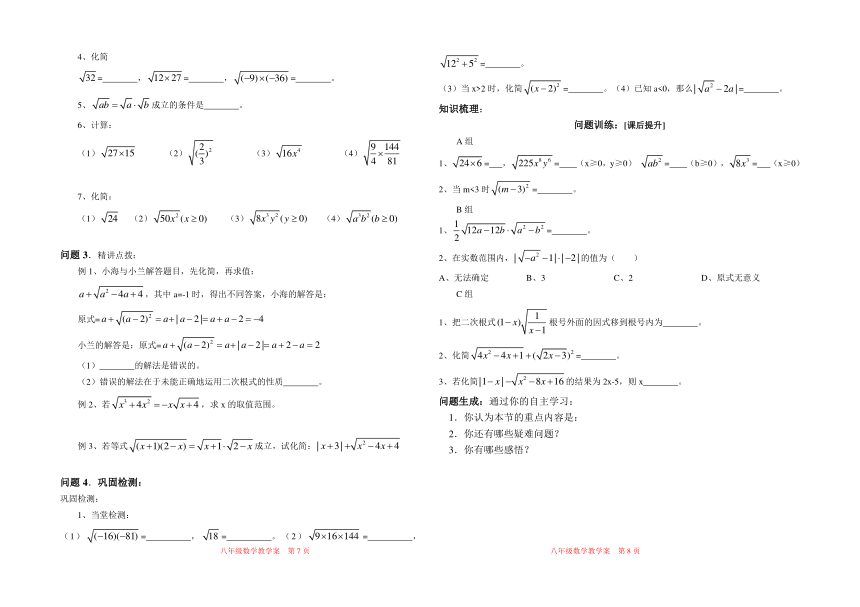 4、化简
√32=_______，√(12×27)=_______，√((-9)×(-36))=_______。
5、√ab=√a·√b成立的条件是_______。
6、计算：
（1）√(27×15) （2）√((2/3)²) （3）√(16x⁴) （4）√(9/4×144/81)
7、化简：
（1）√24 （2）√(50x²)(x≥0) （3）√(8x³y²)(y≥0) （4）√(a³b²)(b≥0)
问题3．精讲点拨：
例1、小海与小兰解答题目，先化简，再求值：
a+√(a²-4a+4)，其中a=-1时，得出不同答案，小海的解答是：
原式=a+√((a-2)²)=a+|a-2|=a+a-2=-4
小兰的解答是：原式=a+√((a-2)²)=a+|a-2|=a+2-a=2
（1）_______的解法是错误的。
（2）错误的解法在于未能正确地运用二次根式的性质_______。
例2、若√(x³+4x²)=-x√(x+4)，求x的取值范围。
例3、若等式√((x+1)(2-x))=√(x+1)·√(2-x)成立，试化简：|x+3|+√(x²-4x+4)
问题4．巩固检测：
巩固检测：
1、当堂检测：
（1）√((-16)(-81))=_________，√18=_________。（2）√(9×16×144)=_________，
八年级数学教学案 第7页
√(12²+5²)=_______。
（3）当x>2时，化简√((x-2)²)=_______。（4）已知a<0，那么|√(a²)-2a|=_______。
知识梳理：
问题训练：[课后提升]
A组
1、√(24×6)=___，√(225x⁸y⁶)=____（x≥0，y≥0） √(ab²)=____(b≥0)，√(8x³)=___(x≥0)
2、当m<3时√((m-3)²)=_______。
B组
1、1/2√(12a-12b)·√(a²-b²)=_______。
2、在实数范围内，|√(-a²-1)|·|-2|的值为（ ）
A、无法确定 B、3 C、2 D、原式无意义
C组
1、把二次根式(1-x)√(1/(x-1))根号外面的因式移到根号内为_______。
2、化简√(4x²-4x+1)+(√(2x-3))²=_______。
3、若化简|1-x|-√(x²-8x+16)的结果为2x-5，则x_______。
问题生成：通过你的自主学习：
1．你认为本节的重点内容是：
2．你还有哪些疑难问题？
3．你有哪些感悟？
八年级数学教学案 第8页